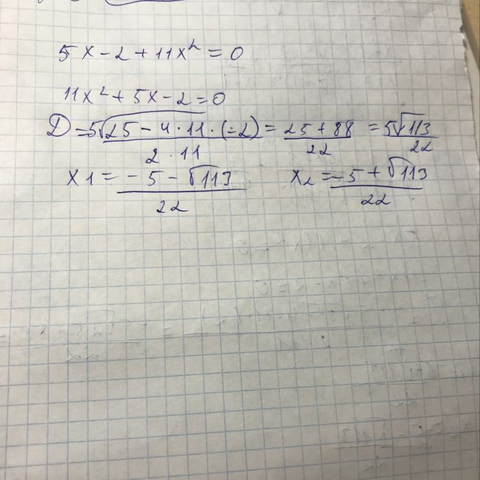 5x-2+11x²=0
11x²+5x-2=0
D=5√25-4·11·(-2)/2·11=25+88/22=5√113/22
x1=-5-√113/22 x2=-5+√113/22